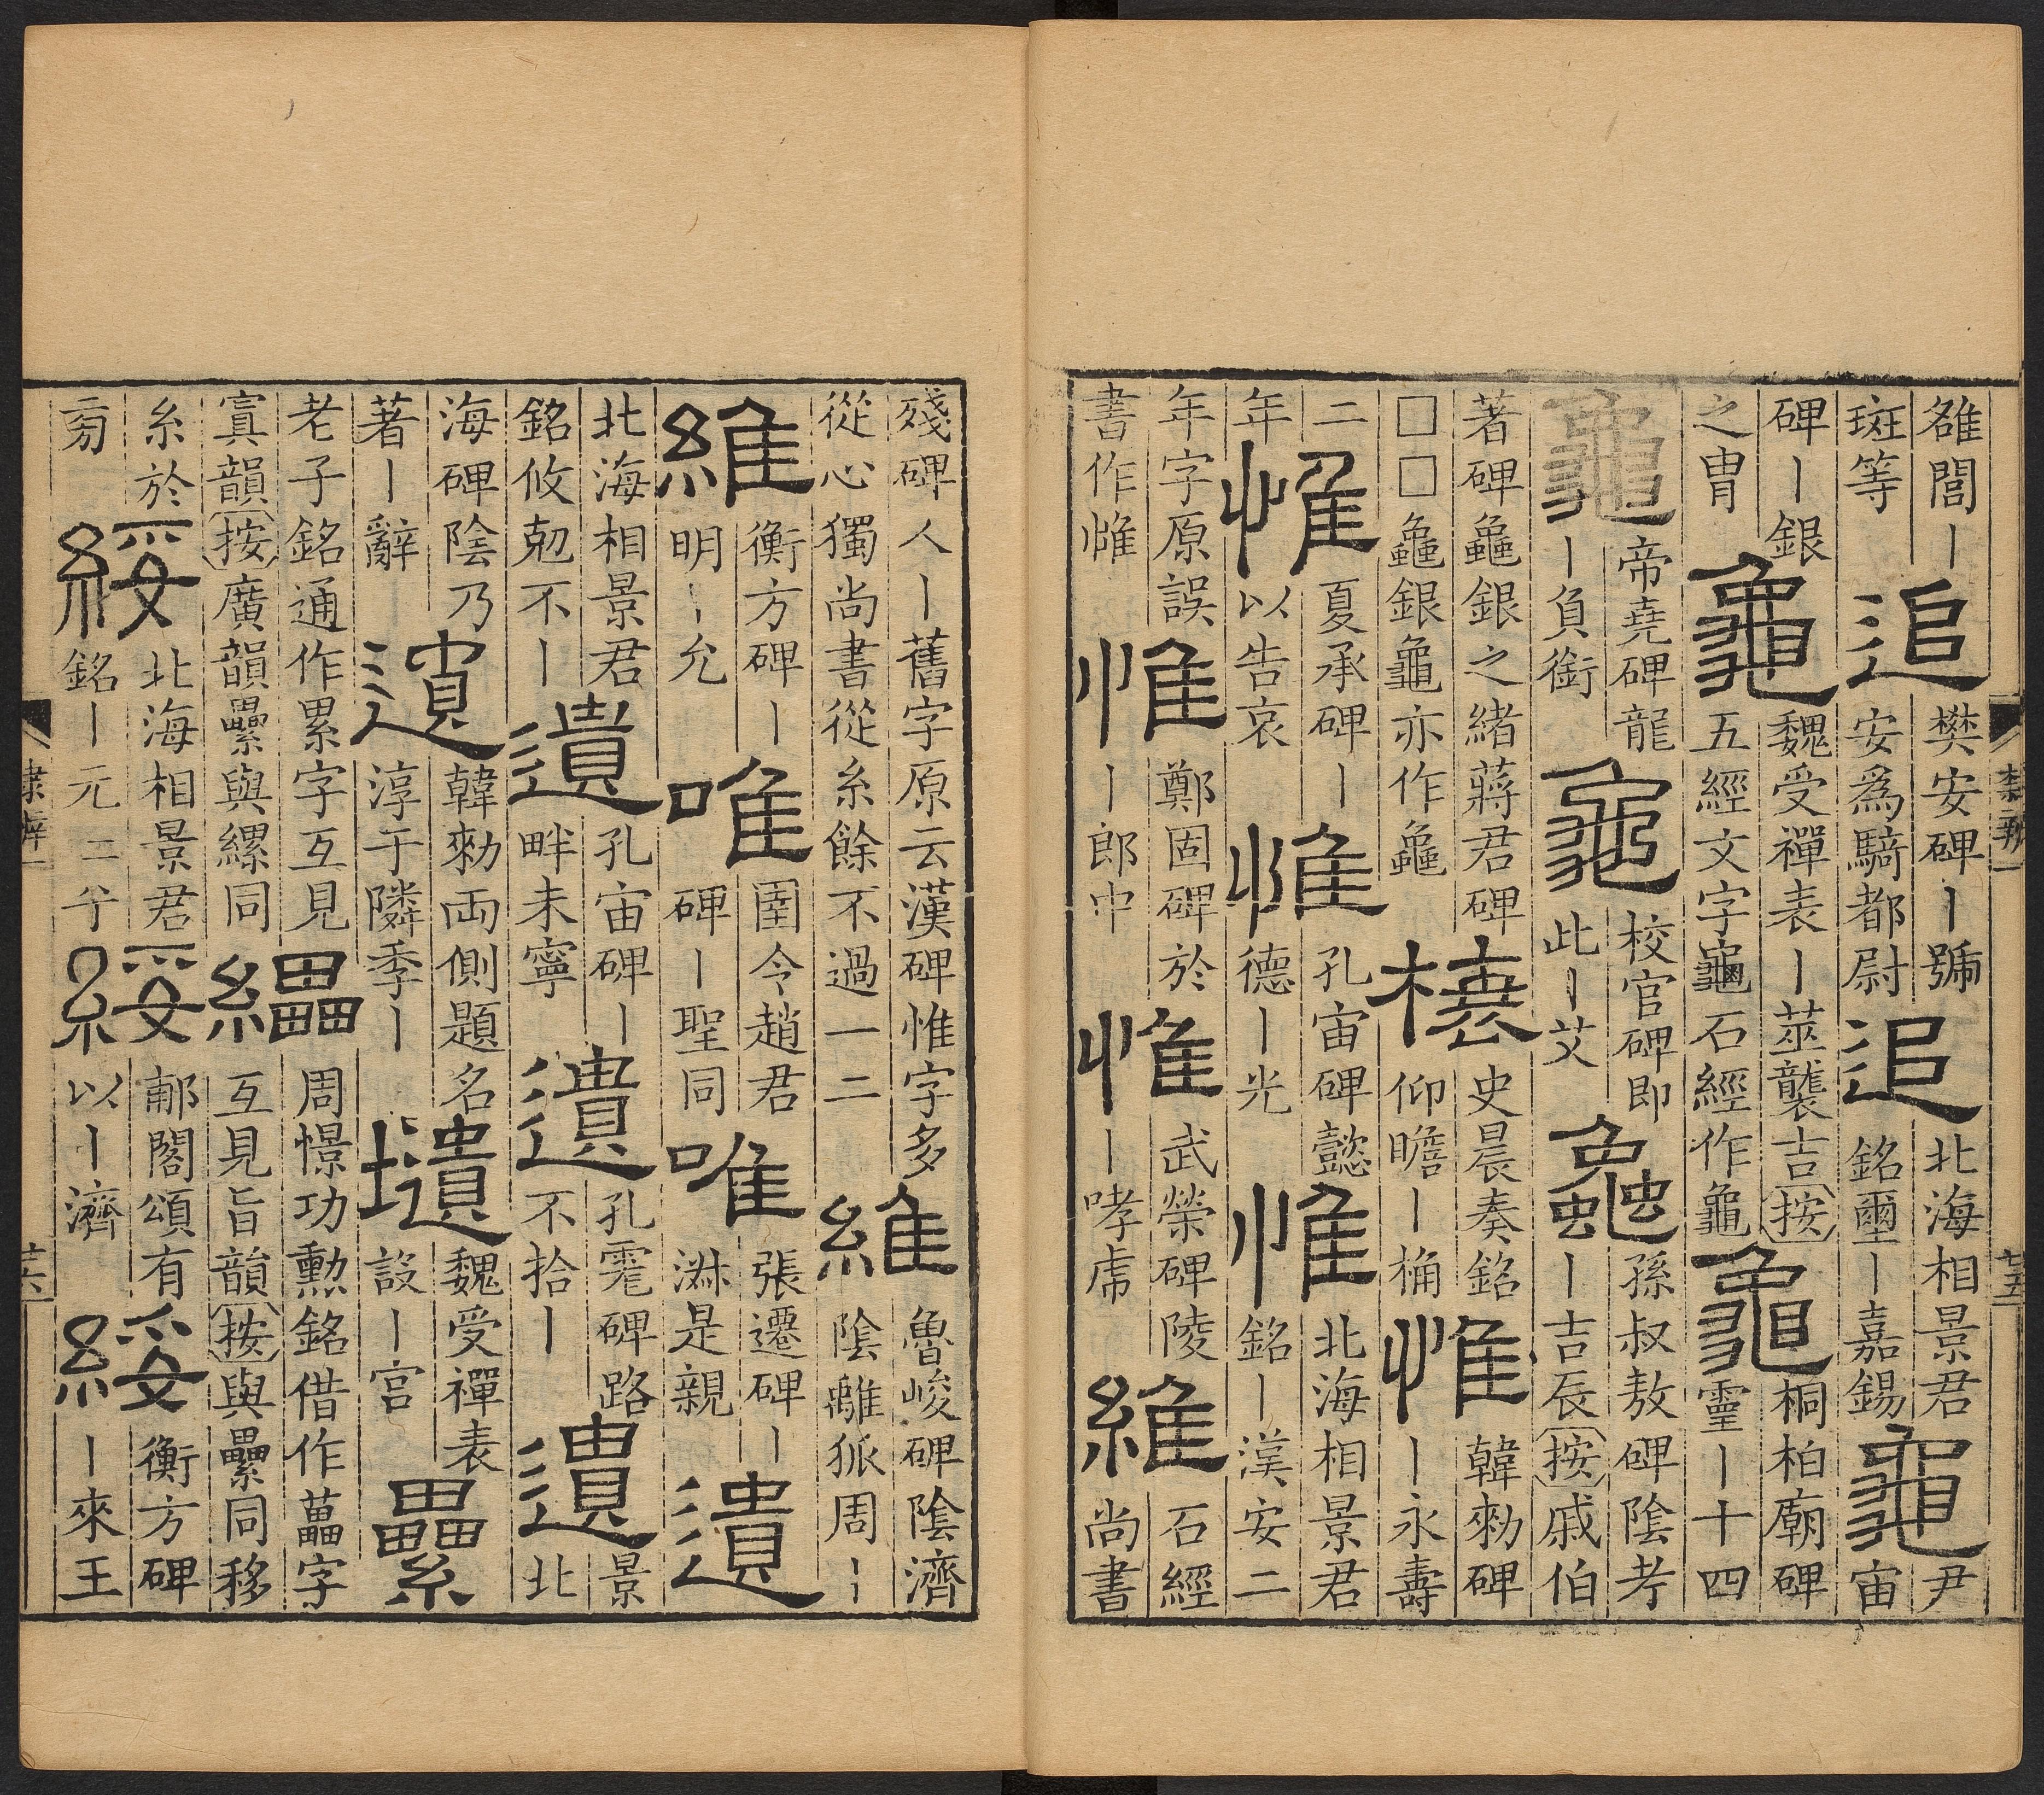 雒閭｜斑等 追 樊安碑｜號安爲騎都尉 追 北海相景君銘爾｜嘉錫 龜 尹宙
碑｜銀之胄 龜 魏受禪表｜筮襲吉按五經文字龜石經作龜 龜 桐柏廟碑靈｜十四
龜 帝堯碑龍｜負銜 龜 校官碑即此｜艾 龜 孫叔敖碑陰考｜吉辰按戚伯
著碑龜銀之緒蔣君碑□□龜銀龜亦作龜 榱 史晨奏銘仰瞻｜桷 惟 韓勑碑｜永壽
二年 惟 夏承碑｜以告哀 惟 孔宙碑懿德｜光 惟 北海相景君銘｜漢安二
年字原誤書作惟 惟 鄭固碑於｜郎中 惟 武榮碑陵｜哮虎 維 石經尚書
殘碑人｜舊字原云漢碑惟字多從心獨尚書從糸餘不過一二 維 魯峻碑陰濟陰離狐周｜
維 衡方碑｜明｜允 唯 圉令趙君碑｜聖同 唯 張遷碑｜淋是親 遺
北海相景君銘攸剋不｜ 遺 孔宙碑｜畔未寧 遺 孔䨲碑路不拾｜ 遺 景北
海碑陰乃著｜辭 遺 韓勑兩側題名淳于隣季｜ 壝 魏受禪表設｜宮 纍
老子銘通作累字互見寘韻按廣韻纍與縲同 纝 周憬功勲銘借作藟字互見旨韻按與纍同移
糸於旁 綏 北海相景君銘｜元二兮 綏 郙閣頌有以｜濟 綏 衡方碑｜來王
隸辨一